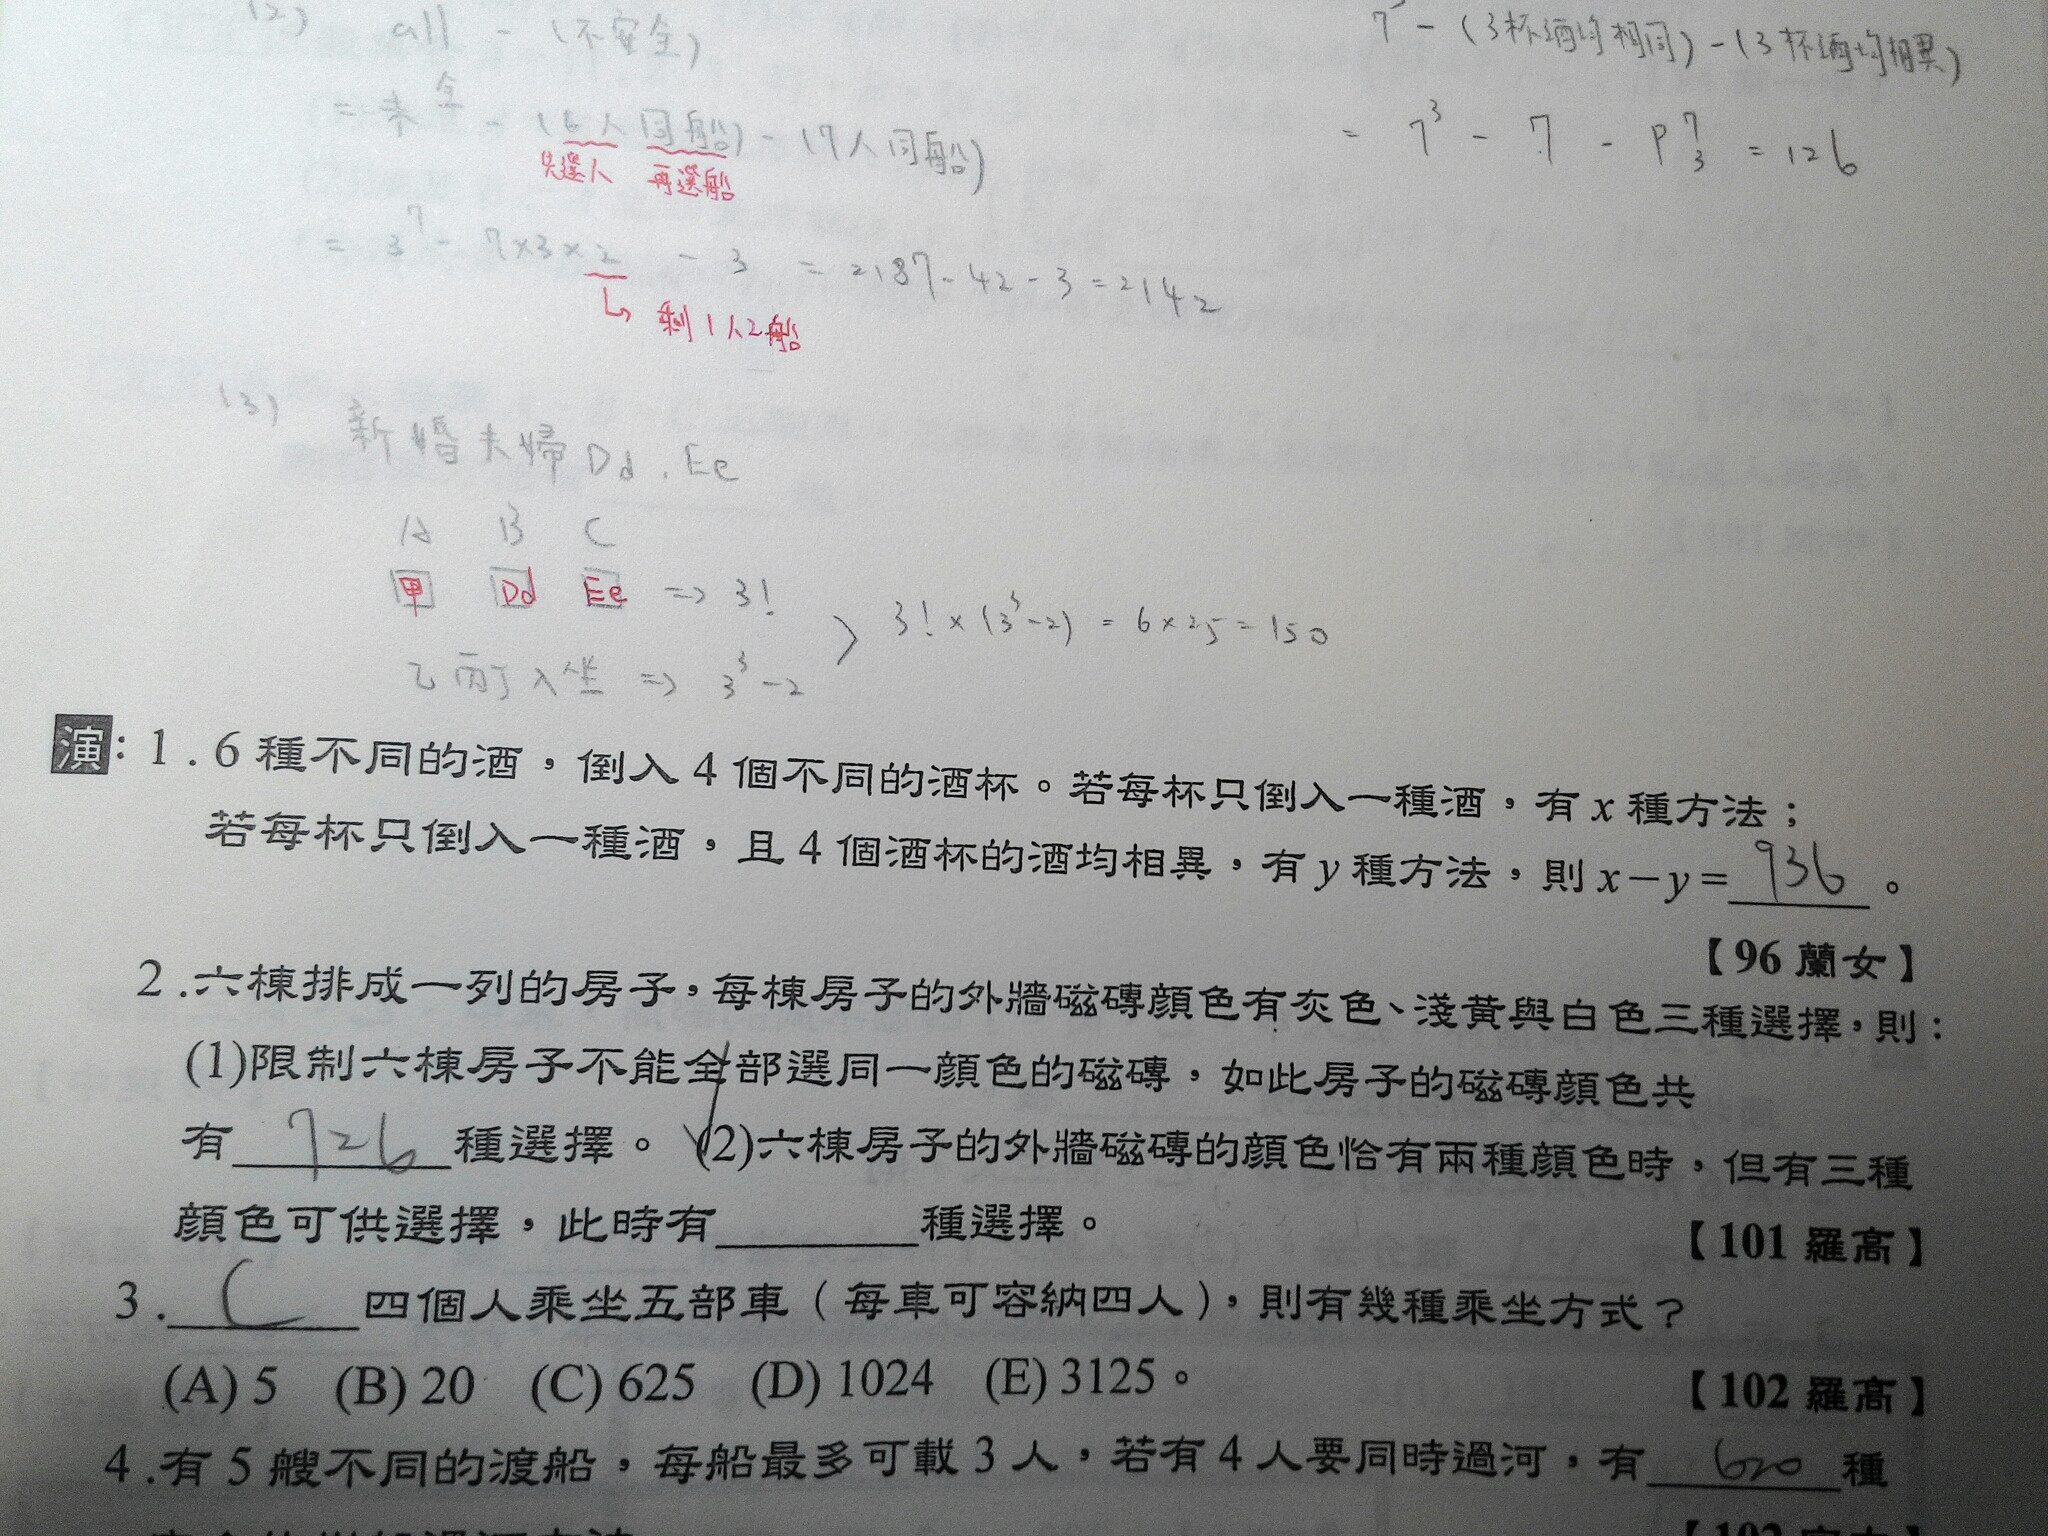 (2) all - (不安全)
= 全 - (6人同船) - (7人同船)
先選人 再選船
= 3⁷ - 7×3×2 - 3 = 2187-42-3=2142
↳ 剩1人2船
- (3杯酒均相同) - (3杯酒均相異)
= 7³ - 7 - P⁷₃ = 126
(3) 新婚夫婦Dd.Ee
A B C
甲 Dd Ee => 3!
乙丙丁入坐 => 3³-2
3!×(3³-2) = 6×25=150
演: 1.6種不同的酒,倒入4個不同的酒杯。若每杯只倒入一種酒,有x種方法;
若每杯只倒入一種酒,且4個酒杯的酒均相異,有y種方法,則x-y=936。
【96 蘭女】
2.六棟排成一列的房子,每棟房子的外牆磁磚顏色有灰色、淺黃與白色三種選擇,則:
(1)限制六棟房子不能全部選同一顏色的磁磚,如此房子的磁磚顏色共
有726種選擇。 (2)六棟房子的外牆磁磚的顏色恰有兩種顏色時,但有三種
顏色可供選擇,此時有______種選擇。
【101 羅高】
3. C 四個人乘坐五部車(每車可容納四人),則有幾種乘坐方式?
(A) 5 (B) 20 (C) 625 (D) 1024 (E) 3125。
【102 羅高】
4.有5艘不同的渡船,每船最多可載3人,若有4人要同時過河,有620種